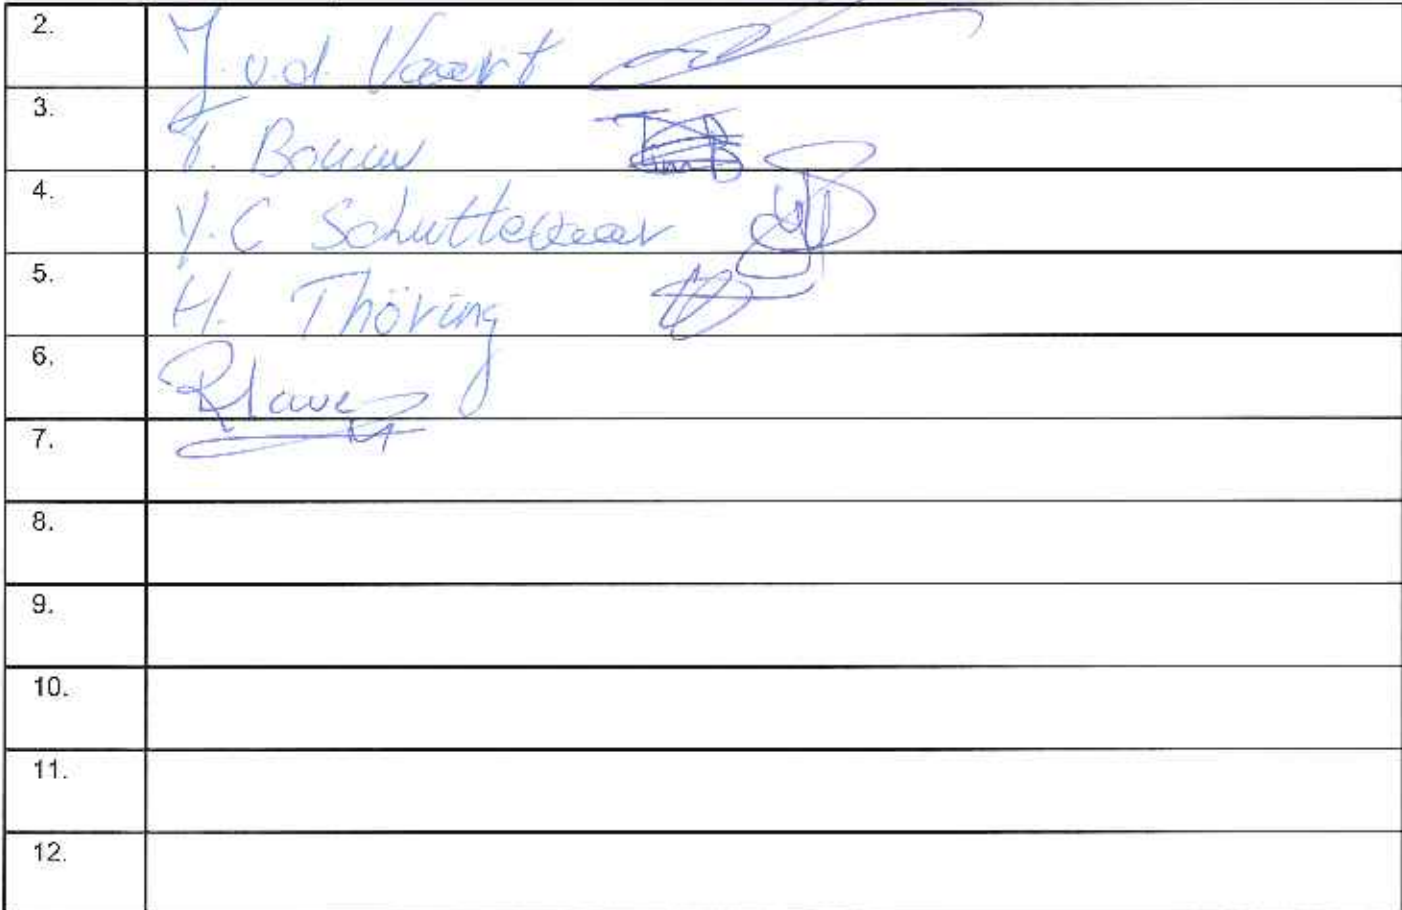 2. J. v.d. Vaart
3. T. Bouw
4. Y.C Schuttevaer
5. H. Thöring
6.
7.
8.
9.
10.
11.
12.